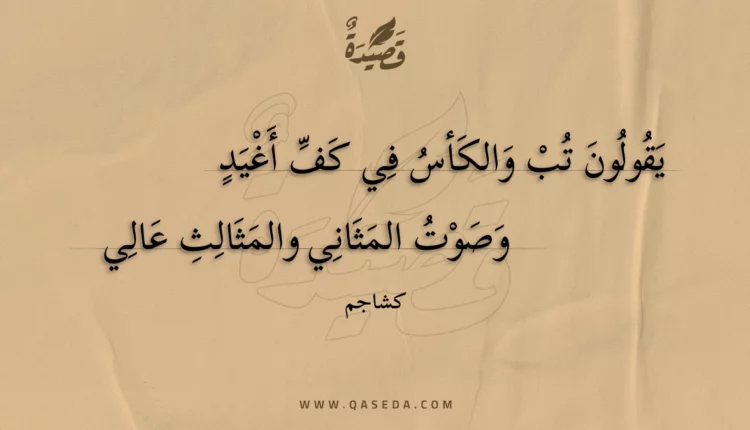 قَصِيدَةٌ
يَقُولُونَ تُبْ وَالكَأسُ فِي كَفِّ أَغْيَدٍ
وَصَوْتُ المَثَانِي والمَثَالِثِ عَالِي
كشاجم
WWW.QASEDA.COM